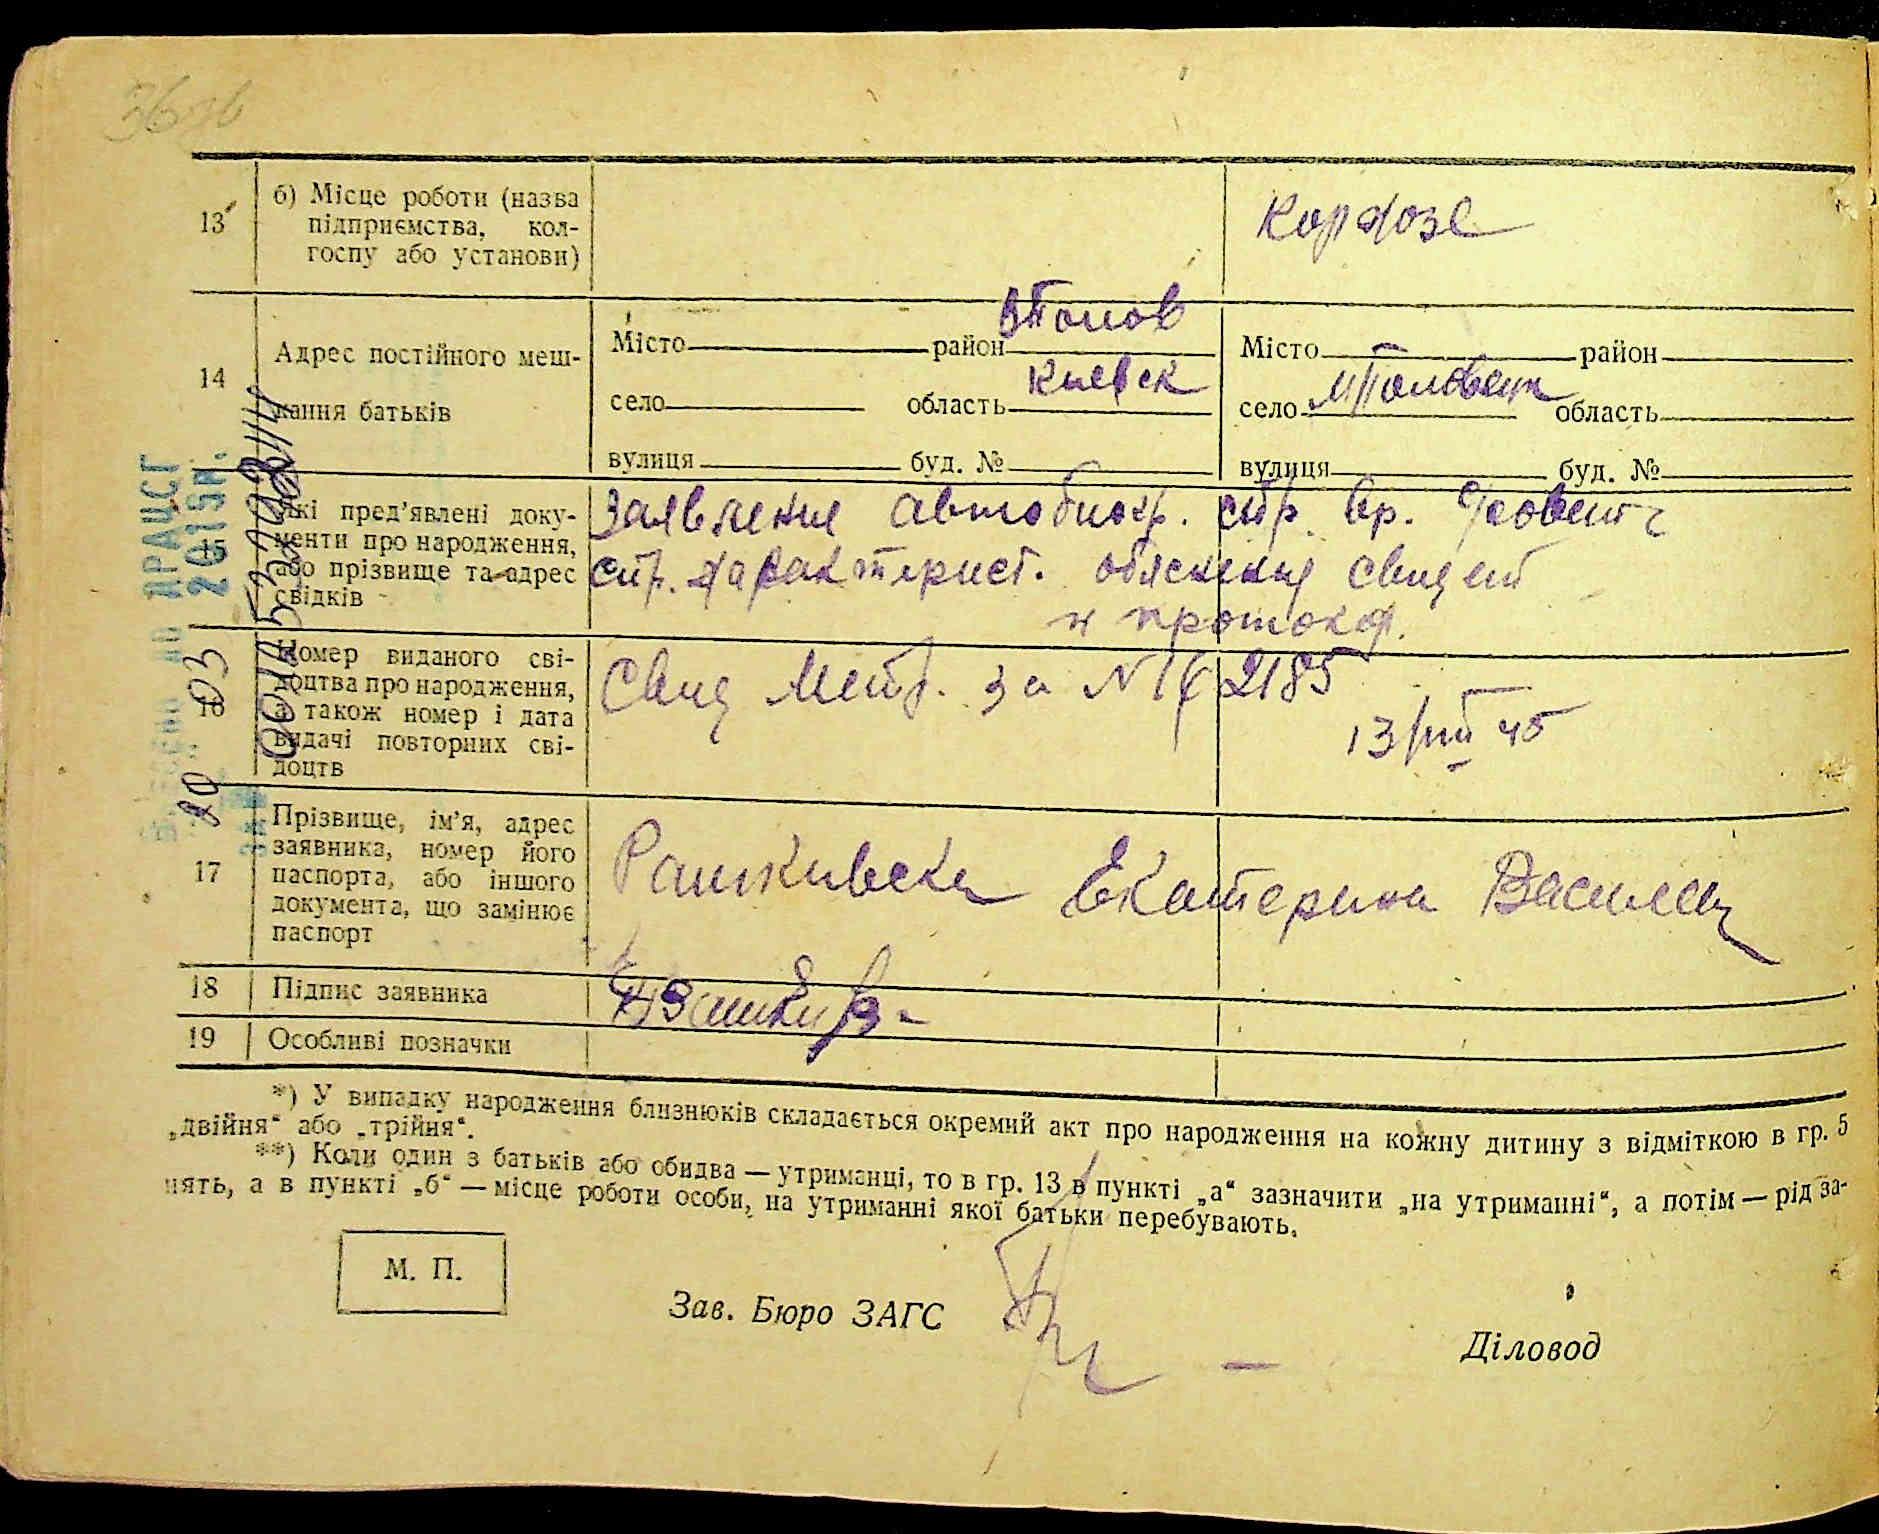 13
б) Місце роботи (назва
підприємства, кол-
госпу або установи)
Колхозе
14
Адрес постійного меш-
кання батьків
Місто район
село область Киевск
вулиця буд. №
Місто район
село область
вулиця буд. №
ДРАЦСГ
2015р.
15
Які пред’явлені доку-
менти про народження,
або прізвище та адрес
свідків
Заявление автобиогр. спр. вр.
спр. характерист. обяснения свидет
и протокол.
03
16
Номер виданого сві-
доцтва про народження,
а також номер і дата
видачі повторних сві-
доцтв
Свид Метр. за № 2185
13/VIII 45
17
Прізвище, ім’я, адрес
заявника, номер його
паспорта, або іншого
документа, що замінює
паспорт
Екатерина Василев
18
Підпис заявника
19
Особливі позначки
*) У випадку народження близнюків складається окремий акт про народження на кожну дитину з відміткою в гр. 5
„двійня“ або „трійня“.
**) Коли один з батьків або обидва — утриманці, то в гр. 13 в пункті „а“ зазначити „на утриманні“, а потім — рід за-
нять, а в пункті „б“ — місце роботи особи, на утриманні якої батьки перебувають.
М. П.
Зав. Бюро ЗАГС
Діловод